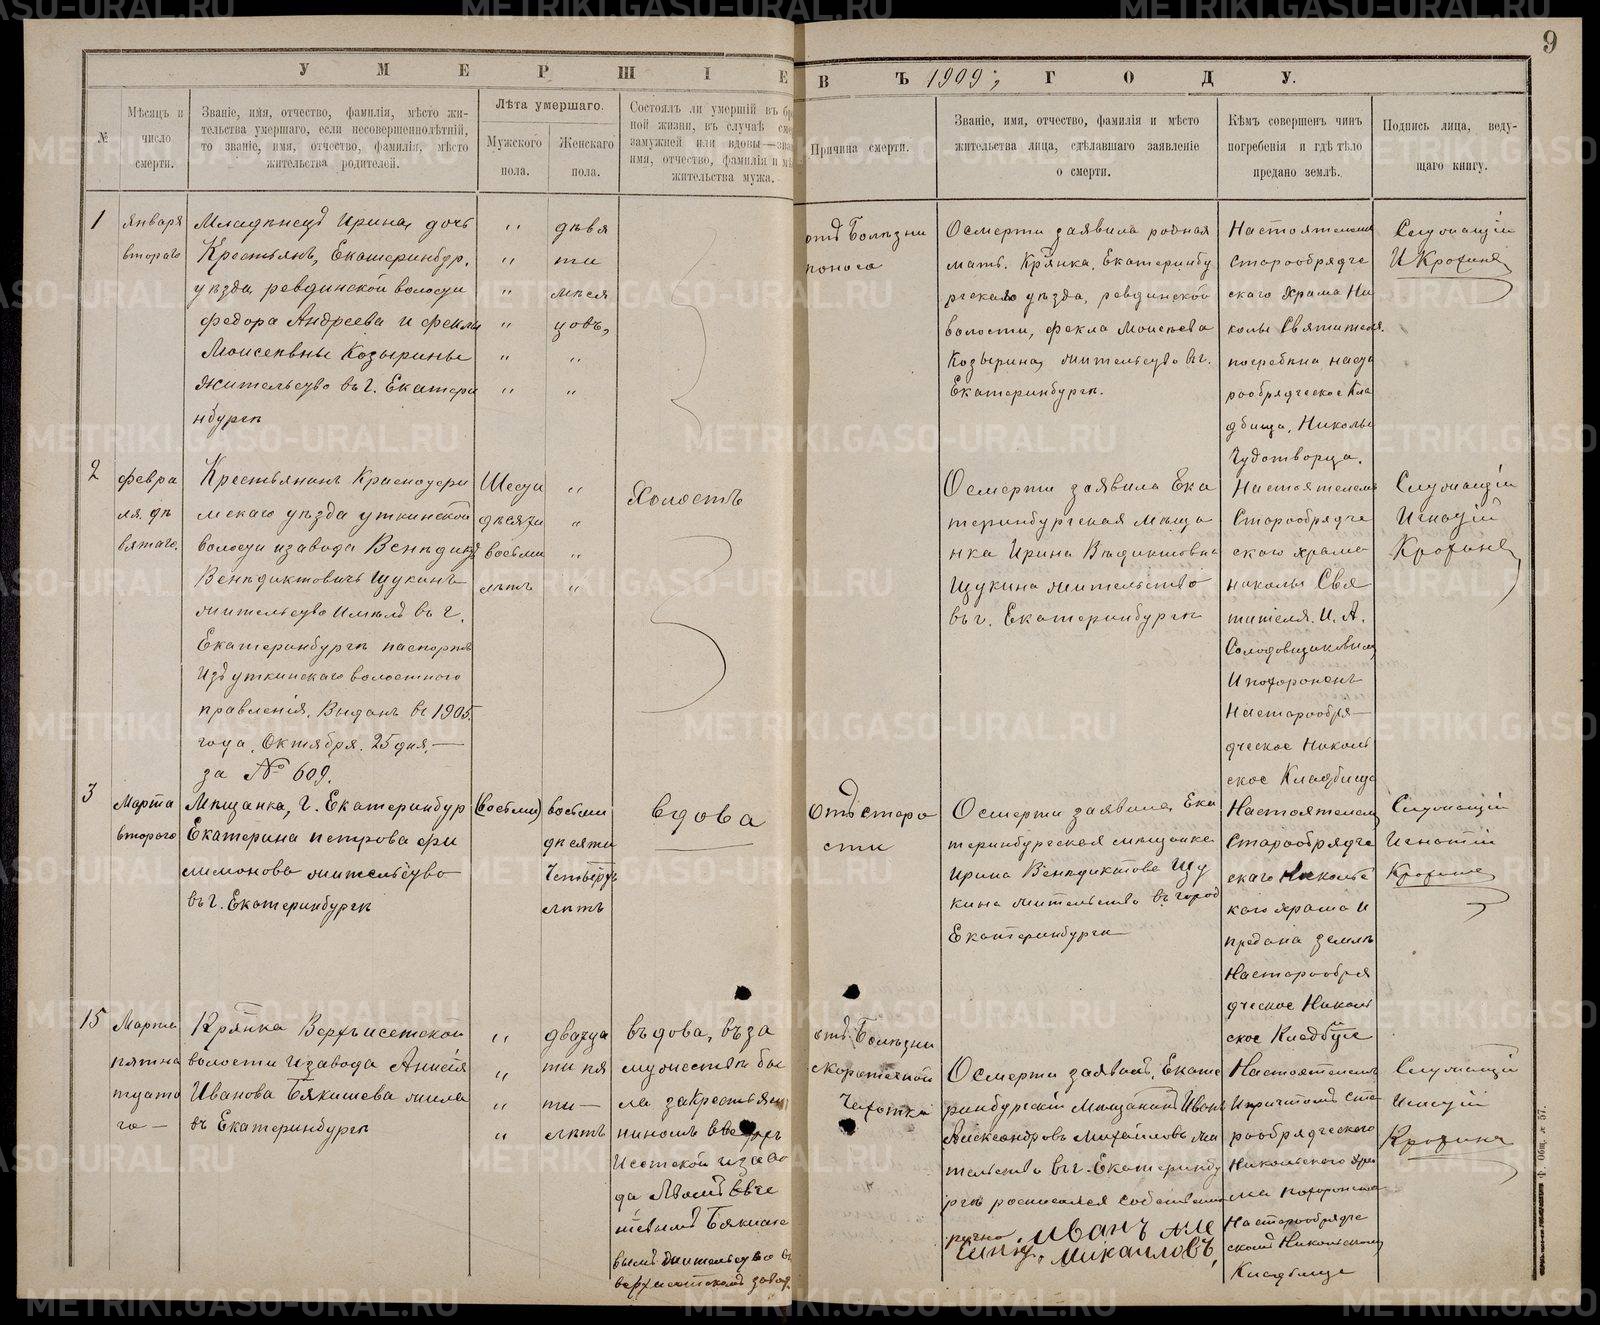 9
УМЕРШІЕ ВЪ 1909, ГОДУ.
№
Мѣсяцъ и
число
смерти.
Званіе, имя, отчество, фамилія, мѣсто жи-
тельства умершаго, если несовершеннолѣтній,
то званіе, имя, отчество, фамилія, мѣсто
жительства родителей.
Лѣта умершаго.
Мужского
пола.
Женскаго
пола.
Состоялъ ли умершій въ бр
ной жизни, въ случаѣ сме
замужней или вдовы—зва
имя, отчество, фамилія и мѣ
жительства мужа.
Причина смерти.
Званіе, имя, отчество, фамилія и мѣсто
жительства лица, сдѣлавшаго заявленіе
о смерти.
Кѣмъ совершенъ чинъ
погребенія и гдѣ тѣло
предано землѣ.
Подпись лица, веду-
щаго книгу.
1
Января
второго
Младѣнецъ Ирина, дочь
Крестьянъ, Екатеринбур.
уѣзда, ревдинской волости
федора Андреева и феклы
Моисеевны Козырины
жительство въ г. Екатери
нбургѣ
" девя
" ти
" мѣся
" цовъ,
" "
" "
отъ Болѣзни
поноса
Осмерти заявила родная
мать. Крянка, Екатеринбу
ргскаго уѣзда, ревдинской
волости, фекла Моисѣева
Козырина, жительство въ г.
Екатеринбургѣ.
Настоятелемъ
Старообрядче
скаго храма Ни
колы Святителя.
погребѣна наста
рообрядческое Кла
дбища, Николы
Чудотворца.
Служащій
И Крохинъ
2
февра
ля. дѣ
вятаго.
Крестьянинъ Красноуфи
мскаго уѣзда уткинской
волости изавода Венѣдикт
Венѣдиктовичъ Щукинъ
жительство Имѣлъ въ г.
Екатеринбургѣ паспортъ
Изъ уткинскаго волостного
правленія, Выданъ въ 1905.
года. Октября. 25 дня.—
за № 609.
Шести "
дѣсяти "
восьми "
лѣтъ "
Холостъ
Осмерти заявила Ека
теринбургская мѣща
нка Ирина Вѣдиктовна
Щукина жительство
въ г. Екатеринбургѣ
Настоятелемъ
Старообрядче
скаго храма
николы Свя
тителя. И. А.
Солодовщиковымъ
И похороненъ
Настарообря—
дческое Николь
ское Кладбище
Служащій
Игнатій
Крохинъ
3
Марта
второго
Мѣщанка, г. Екатеринбур
Екатерина петрова фи
лимонова жительство
въ г. Екатеринбургѣ
(восьми) восьми
дѣсяти
Четыруг
лѣтъ
вдова
Отъ старо
сти
Осмерти заявила, Ека
теринбургская мѣщанка
Ирина Венѣдиктова Щу
кина жительство въ город
Екатеринбургѣ
Настоятелем
Старообрядче
скаго Никольс
каго храма И
предана землѣ
Настарообря
дческое Николь
ское Кладбище
Служащій
Игнатій
Крохинъ
15
Марта
пятна
тцато
го —
Крянка Верхъисетской
волости Изавода Анисія
Иванова Бякишева жила
въ Екатеринбургѣ
" двадца
" ти пя
" ти—
" лѣтъ
въдова, въ за
мужестьвѣ бы
ла закрестьян
ниномъ вверхъ
Исетской изаво
да
вымъ жительство в
верхисетскомъ завод
отъ Болѣзни
скоротечной
Чехотки
Осмерти заявилъ, Екате
ринбургскій мѣщанинъ Иванъ
Александровъ Михайловъ жи
тельство въ г. Екатеринбу
ргѣ росписался собственно
ручно, Иванъ Але
Михаиловъ,
Настоятелемъ
И причтомъ ста
рообрядческого
Никольского хра
ма похоронена
На старообрядче
скомъ Никольскомъ
Кладбище
Служащій
Игнатій
Крохинъ
Ф. Общ. № 57.
METRIKI.GASO-URAL.RU